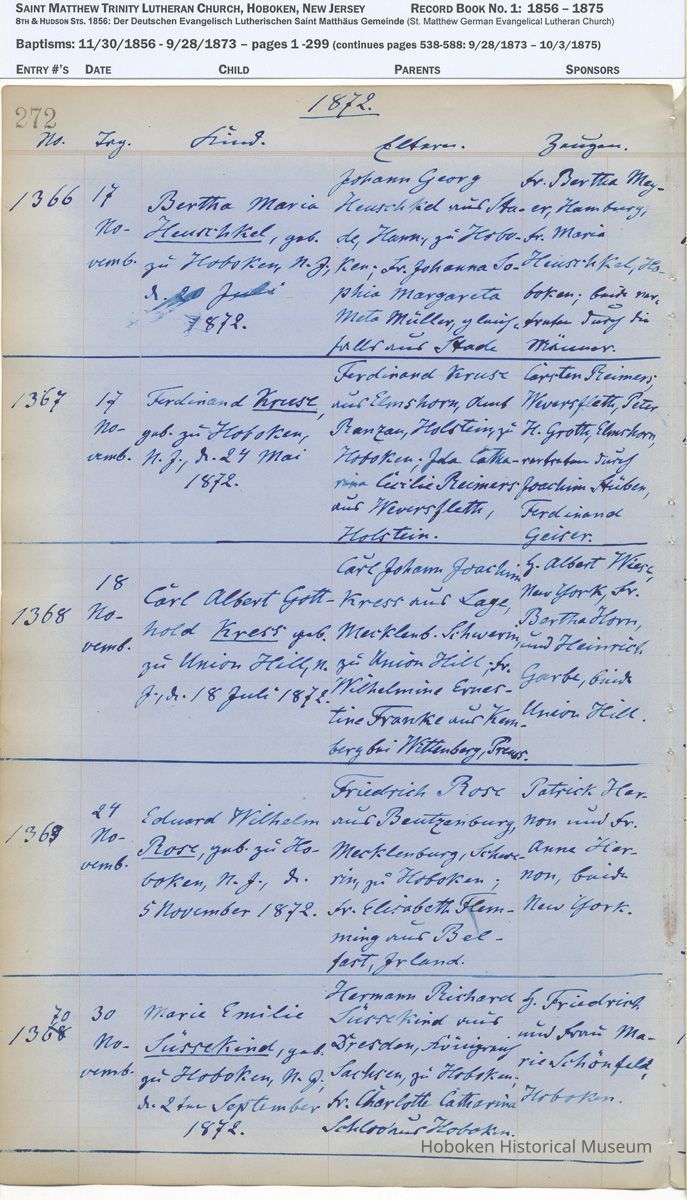 SAINT MATTHEW TRINITY LUTHERAN CHURCH, HOBOKEN, NEW JERSEY RECORD BOOK NO. 1: 1856 – 1875
8TH & HUDSON STS. 1856: Der Deutschen Evangelisch Lutherischen Saint Matthäus Gemeinde (St. Matthew German Evangelical Lutheran Church)
Baptisms: 11/30/1856 - 9/28/1873 – pages 1 -299 (continues pages 538-588: 9/28/1873 – 10/3/1875)
ENTRY #'S DATE CHILD PARENTS SPONSORS
272
1872.
No. Tag. Kind. Eltern. Zeugen.
1366
17
No-
vemb.
Bertha Maria
Heuschkel, geb.
zu Hoboken, N. J.,
d. 2 Juli
1872.
Johann Georg
Heuschkel aus Sta-
de, Hann., zu Hobo-
ken; Fr. Johanna So-
phia Margareta
Meta Müller, gleich-
falls aus Stade
Fr. Bertha Mey-
er, Hamburg,
Fr. Maria
Heuschkel, Ho-
boken; beide ver-
treten durch die
Männer.
1367
17
No-
vemb.
Ferdinand Kruse,
geb. zu Hoboken,
N. J., d. 24 Mai
1872.
Ferdinand Kruse
aus Elmshorn, Amt
Ranzau, Holstein, zu
Hoboken; Ida Catha-
rina Cäcilie Reimers
aus Wewersfleth,
Holstein.
Carsten Reimers,
Wewersfleth, Peter
H. Groth, Elmshorn,
vertreten durch
Joachim Stüben,
Ferdinand
Geiser.
1368
18
No-
vemb.
Carl Albert Gott-
hold Kress geb.
zu Union Hill, N.
J., d. 18 Juli 1872.
Carl Johann Joachim
Kress aus Lage,
Mecklenb. Schwerin,
zu Union Hill; Fr.
Wilhelmine Ernes-
tine Franke aus Kem-
berg bei Wittenberg, Preus.
H. Albert Wiese,
New York, Fr.
Bertha Horn,
und Heinrich
Garbe, beide
Union Hill.
1369
24
No-
vemb.
Eduard Wilhelm
Rose, geb. zu Ho-
boken, N. J., d.
5 November 1872.
Friedrich Rose
aus Beutzenburg,
Mecklenburg, Schwe-
rin, zu Hoboken;
Fr. Elisabeth Flem-
ming aus Bel-
fast, Irland.
Patrick Her-
non und Fr.
Anna Her-
non, beide
New York.
70
1368
30
No-
vemb.
Marie Emilie
Süssekind, geb.
zu Hoboken, N. J.,
d. 2ten September
1872.
Hermann Richard
Süssekind aus
Dresden, Königreich
Sachsen, zu Hoboken;
Fr. Charlotte Catharina
aus Hoboken.
H. Friedrich
und Frau Ma-
rie Schönfeld,
Hoboken.
Hoboken Historical Museum